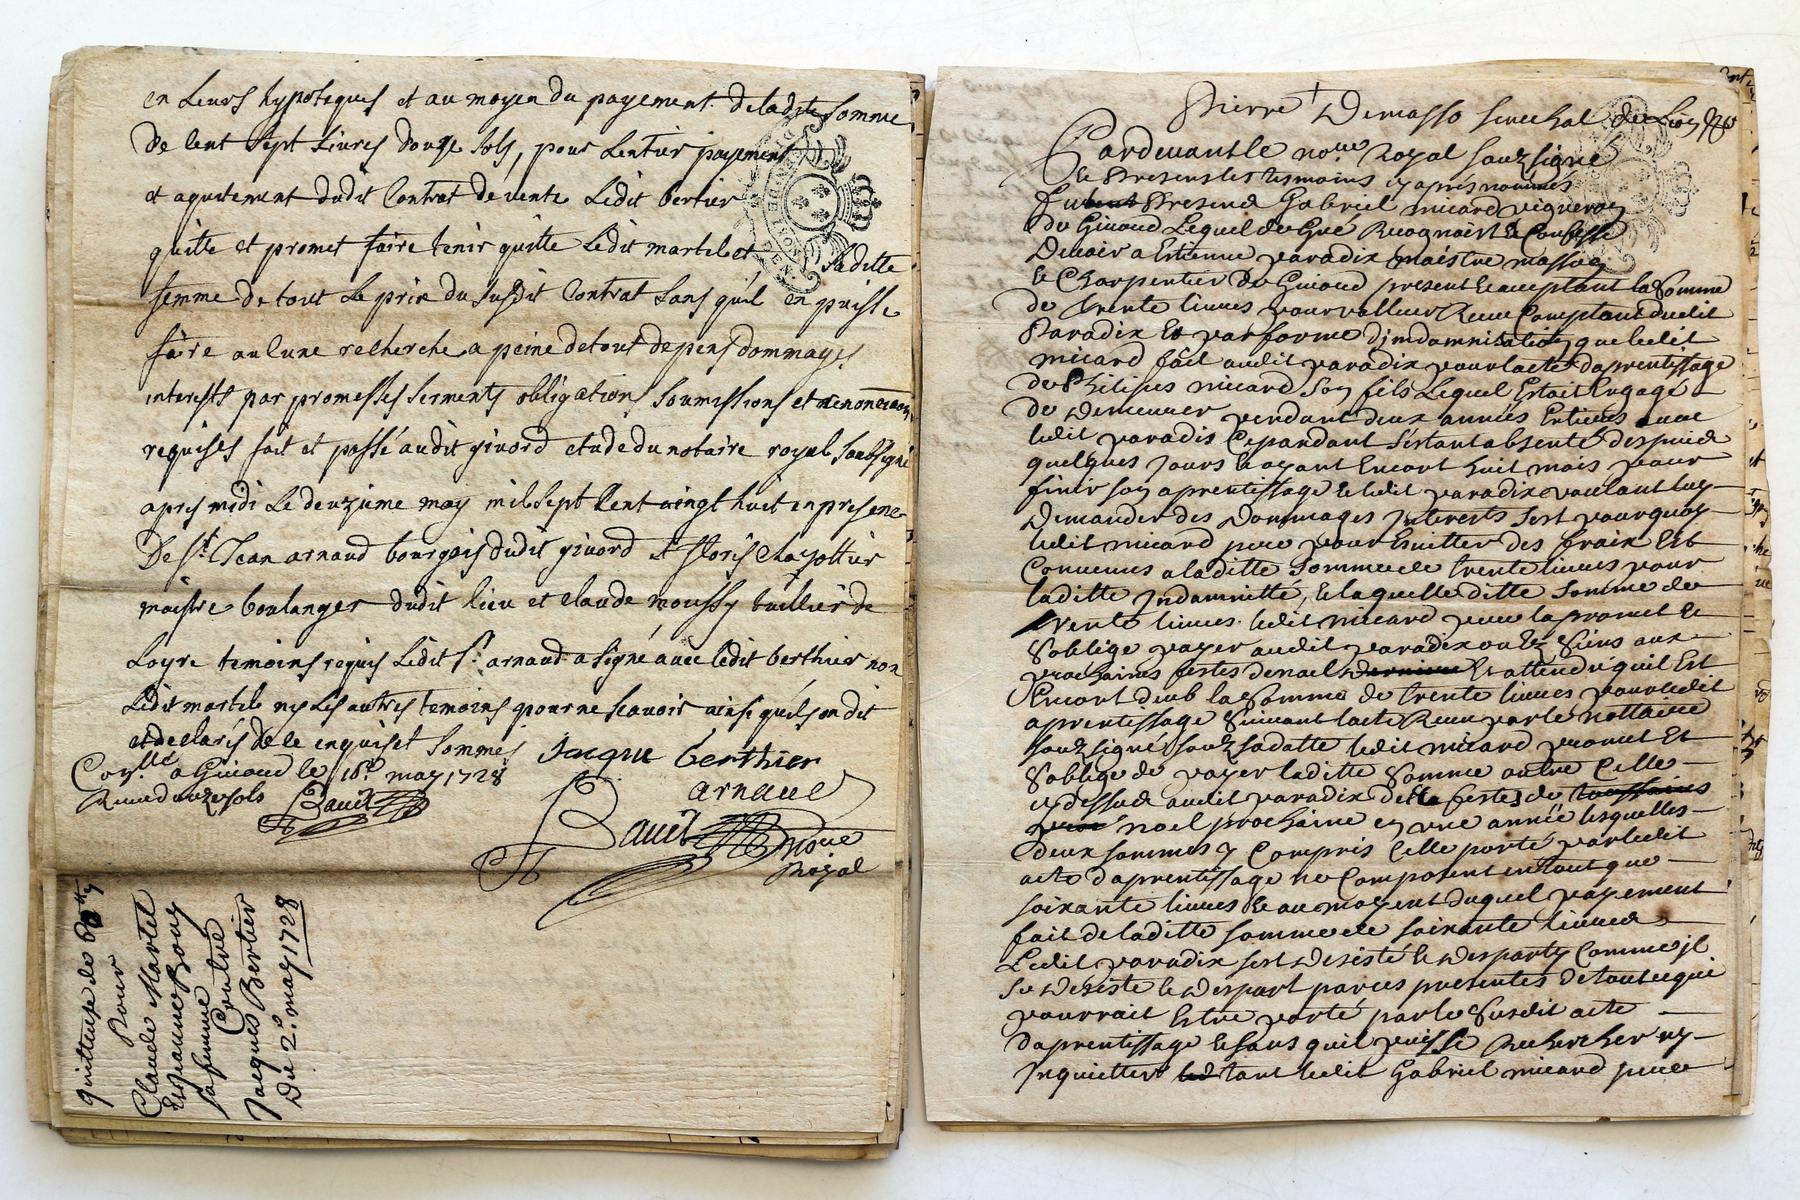 en Leurs hypoteques et au moyen du payement de ladste somme
De Cent sept Livres douze sols, pour Lentier payement
et aquitement dudit Contrat de vente Ledit bertier
quitte et promet faire tenir quitte Ledit martel et sa ditte
femme de tout Le prix du susdit Contrat sans quil en puisse
faire aucune recherche a peine de tous depens dommages
interests par promesses serments obligations soumissions et renonciaons
requises fait et passé audit givord etude du notaire royal soubsigné
apres midi Le deuzieme may mil sept Cent vingt huit en presence
De sr. Jean arnaud bourgois dudit givord et floris Chazottier
maistre boulanger dudit lieu et claude moussy tuillier de
Loyre temoins requis Ledit sr. arnaud a signé avec ledit berthier non
Ledit martel ny Les autres temoins pour ne scavoir ainsi quils on dit
et declarés de ce enquis et sommés
Jaque berthier
arnaud
Conllé a Givord le 10e. may 1728
Receu douze sols
Baud
Baud noere
Roijal
quittance de
Pour
Claude Martel
Estienne Bouy
sa femme
Contre
Jacques Bertier
Du 2e. may 1728
Pierre Demasso senechal de Lion
Pardevant Le nore Royal souzsigné
et Presens les tesmoins cy après nommés
fut Presend Gabriel micard vigneron
de Givord Lequel de Gré Recognoist et Confesse
Devoir a Estienne paradix maistre masson
et Charpentier de Givord present et acceptant la somme
de trente livres pour valleur Receue Comptant dudit
Paradix et par forme d'jndamnisation que ledit
micard fait audit paradix pour lacte daprentissage
de Philipes micard son fils Lequel Estoit Engagé
de demeurer pendant deux années Entieres avec
ledit paradis Cepandant s'estant absenté despuis
quelques jours et ayant Encort huit mois pour
finir son aprentissage et ledit paradix voulant luy
Demander des Dommages jnterests sest pourquoy
ledit micard pere pour Esuitter des fraix Est
Convenus a laditte somme de trente livres pour
laditte jndamnitté, et laquelle ditte somme de
trente livres ledit micard pere la promet et
s'oblige payer audit paradix ou ez siens aux
prochaines festes de noel derniere Et attendu quil Est
Encort deub la somme de trente livres pour ledit
aprentissage suivant lacte Receu par le nottaire
souzsigné souz sa datte ledit micard promet Et
s'oblige de payer laditte somme outre Celle
cy dessus audit paradix de la festes de toussaints
noel prochaine en une année lesquelles
deux sommes y Compris Celle porté par ledit
acte daprentissage ne Composent en tout que
soixante livres et au moyent duquel payement
fait de laditte somme de soixante livres
Ledit paradix sest desisté et desparty Comme jl
se desiste et despart par ces presentes de tout ce qui
pourrait Estre porté par le susdit acte
daprentissage et sans quil puisse Rechercher ny
jnquietter tant ledit Gabriel micard pere